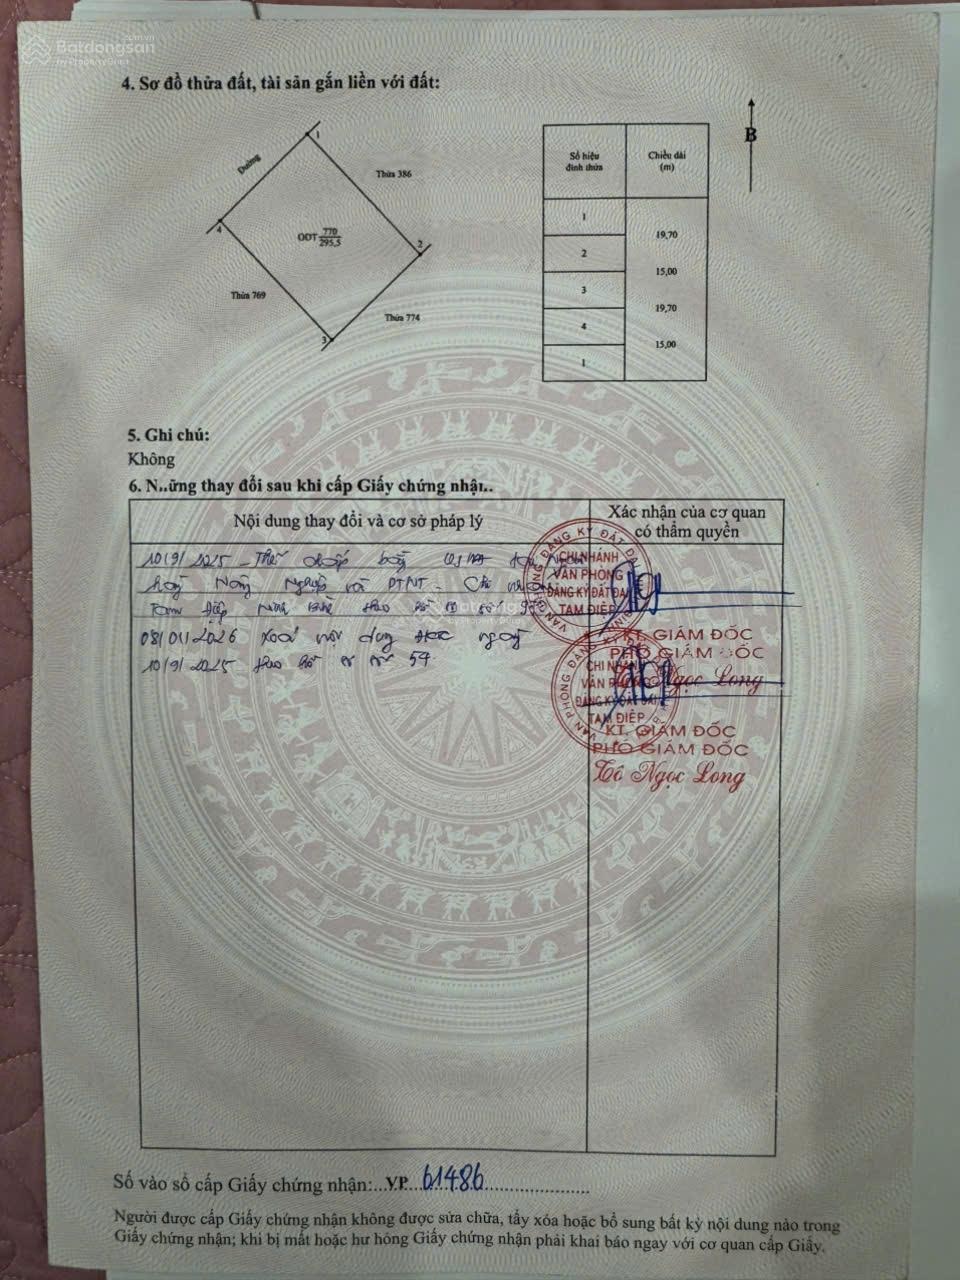 Batdongsan
.com.vn
by PropertyGuru
4. Sơ đồ thửa đất, tài sản gắn liền với đất:
B
1
Đường
Thửa 386
4
ODT 770
295,5
2
Thửa 769
Thửa 774
3
Số hiệu đỉnh thửa
Chiều dài (m)
1
19,70
2
15,00
3
19,70
4
15,00
1
5. Ghi chú:
Không
6. N..ững thay đổi sau khi cấp Giấy chứng nhậ..
Nội dung thay đổi và cơ sở pháp lý
Xác nhận của cơ quan
có thẩm quyền
10/9/2025 Thế chấp bằng
hàng Nông Nghiệp và PTNT - Chi
Tam Điệp Ninh Bình theo hồ sơ số
08/01/2026 xoá nội dung ngày
10/9/2025 theo hồ sơ số 54
VĂN PHÒNG ĐĂNG KÝ ĐẤT ĐAI
CHI NHÁNH
VĂN PHÒNG
ĐĂNG KÝ ĐẤT ĐAI
TAM ĐIỆP
KT. GIÁM ĐỐC
PHÓ GIÁM ĐỐC
Tô Ngọc Long
VĂN PHÒNG ĐĂNG
CHI NHÁNH
VĂN PHÒNG
ĐĂNG KÝ ĐẤT ĐAI
TAM ĐIỆP
KT. GIÁM ĐỐC
PHÓ GIÁM ĐỐC
Tô Ngọc Long
Số vào sổ cấp Giấy chứng nhận:...VP...61486
Người được cấp Giấy chứng nhận không được sửa chữa, tẩy xóa hoặc bổ sung bất kỳ nội dung nào trong
Giấy chứng nhận; khi bị mất hoặc hư hỏng Giấy chứng nhận phải khai báo ngay với cơ quan cấp Giấy.